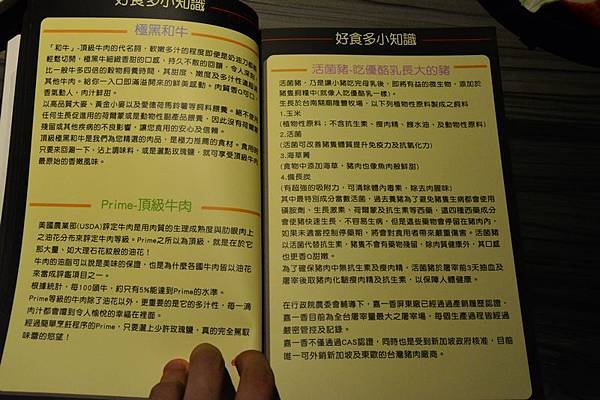 好食多小知識
極黑和牛
「和牛」-頂級牛肉的代名詞，軟嫩多汁的程度即便是奶油刀都能
輕鬆切開，極黑牛細緻香甜的口感，持久不散的回韻，令人深刻
比一般牛多四倍的穀物飼養時間，其甜度、嫩度及多汁性
其他牛肉。給你一入口即滿溢開來的鮮美感動。肉質香Q可口，
香氣動人，肉汁鮮甜。
以高品質大麥、黃金小麥以及愛德荷馬鈴薯等飼料餵養。絕不使用
任何生長促進用的荷爾蒙或是動物性副產品餵養，因此沒有荷爾蒙
殘留或其他疾病的不良影響，讓您食用的安心及信賴。
頂級極黑和牛是我們為您精選的肉品，是極力推薦的食材。食用時
只要來回涮一下，沾上調味料，或是灑點玫瑰鹽，就可享受頂級牛肉
最原始的香嫩風味。
Prime-頂級牛肉
美國農業部(USDA)評定牛肉是用肉質的生理成熟度與肋眼肉上
之油花分布來評定牛肉等級。Prime之所以為頂級，就是在於它
那大量、如大理石花紋般的油花！
牛肉的油脂可以說是美味的保證，也是為什麼各國牛肉皆以油花
來當成評鑑項目之一。
根據統計，每100頭牛，約只有5%能達到Prime的水準。
Prime等級的牛肉除了油花以外，更重要的是它的多汁性，每一滴
肉汁都會嚐到令人愉悅的幸福在裡面。
經過簡單烹飪程序的Prime，只要灑上少許玫瑰鹽，真的完全駕馭
味蕾的慾望！
好食多小知識
活菌豬-吃優酪乳長大的豬
活菌豬，乃是讓小豬吃完母乳後，即將有益的微生物，添加於
豬隻飼糧中(就像人吃優酪乳一樣)。
生長於台南縣麻隆豐牧場，以下列植物性原料製成之飼料
1.玉米
(植物性原料；不含抗生素、瘦肉精、餿水油、及動物性原料)
2.活菌
(活菌可改善豬隻體質提升免疫力及抗氧化力)
3.海草菁
(食物中添加海草，豬肉也像魚肉般鮮甜)
4.備長炭
(有超強的吸附力，可清除體內毒素，除去肉腥味)
其中最特別成分當數活菌，過去養豬為了避免豬隻生病都會使用
磺胺劑、生長激素、荷爾蒙及抗生素等西藥，這四種西藥成分
會使豬快速生長，不容易生病，但是這些藥物會停留在豬肉內，
如果未適當控制停藥期，將會對食用者帶來嚴重傷害。活菌豬
以活菌代替抗生素，豬隻不會有藥物殘留，除肉質健康外，其口感
也更香Q甜嫩。
為了確保豬肉中無抗生素及瘦肉精，活菌豬於屠宰前3天抽血及
屠宰後取豬肉化驗瘦肉精及抗生素，以保障人體健康。
在行政院農委會輔導下，嘉一香屏東廠已經通過產銷履歷認證，
嘉一香目前為全台屠宰量最大之屠宰場，每個生產過程皆經過
嚴密管控及記錄。
嘉一香不僅通過CAS認證，同時也是受到新加坡政府核准，目前
唯一可外銷新加坡及東歐的台灣豬肉廠商。